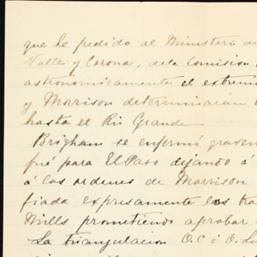 que he pedido al Ministerio de
Valle y Corona, de la Comision
astronomicamente el extrem
y Morrison determinarian
hasta el Rio Grande
Brigham se enfermó graven
fué para El Paso dejando á
á las ordenes de Morrison
fiada expresamente los tra
Mills prometiendo aprobar
La triangulacion O.C i O.L